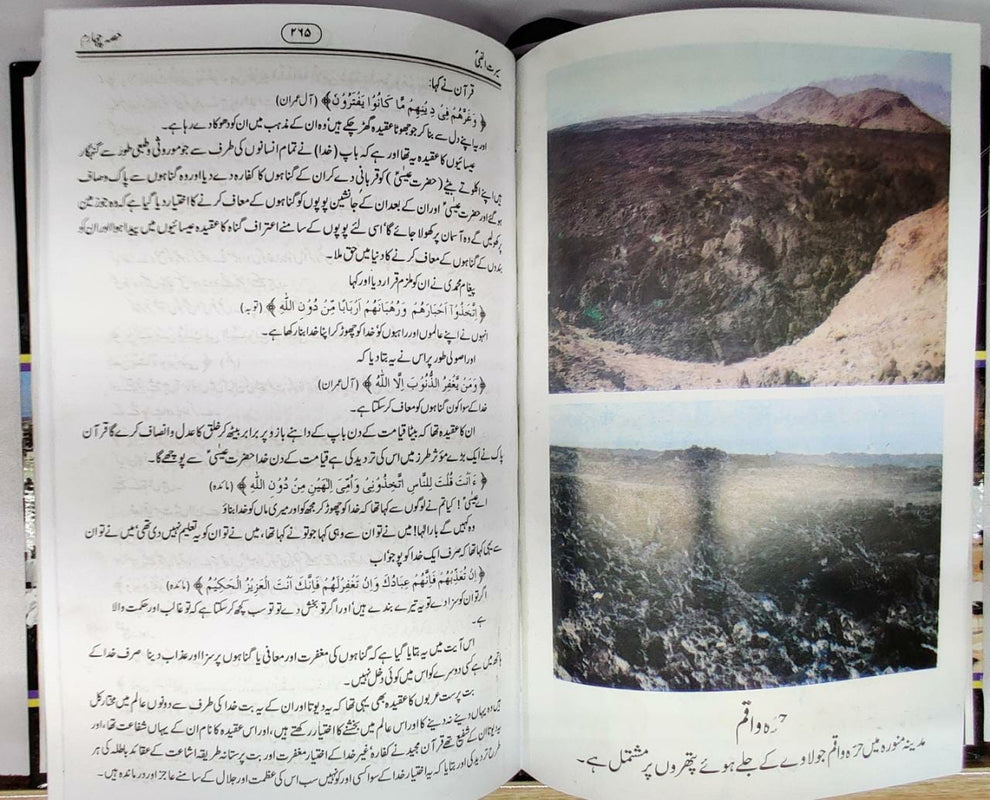 سیرت النبیؐ
۲۶۵
حصہ چہارم
قرآن نے کہا:
﴿ وَغَرَّهُمْ فِی دِینِهِمْ مَّا كَانُوْا یَفْتَرُوْنَ ﴾ (آل عمران)
اور یہ اپنے دل سے بنا کر جو جھوٹا عقیدہ گھڑ چکے ہیں وہ ان کے مذہب میں ان کو دھوکا دے رہا ہے۔
عیسائیوں کا عقیدہ یہ تھا اور ہے کہ باپ (خدا) نے تمام انسانوں کی طرف سے جو موروثی و طبعی طور سے گنہگار
ہیں اپنے اکلوتے بیٹے (حضرت عیسیٰؑ) کو قربانی دے کر ان کے گناہوں کا کفارہ دے دیا اور وہ گناہوں سے پاک و صاف
ہو گئے اور حضرت عیسیٰؑ اور ان کے بعد ان کے جانشین پوپوں کو گناہوں کے معاف کرنے کا اختیار دیا گیا ہے کہ وہ جو زمین
پر کھولیں گے وہ آسمان پر کھولا جائے گا' اسی لئے پوپوں کے سامنے اعتراف گناہ کا عقیدہ عیسائیوں میں پیدا ہوا اور ان کو
بندوں کے گناہوں کے معاف کرنے کا دنیا میں حق ملا۔
پیغام محمدی نے ان کو ملزم قرار دیا اور کہا
﴿ اِتَّخَذُوْا اَحْبَارَهُمْ وَرُهْبَانَهُمْ اَرْبَابًا مِّنْ دُوْنِ اللّٰهِ ﴾ (توبہ)
انہوں نے اپنے عالموں اور راہبوں کو خدا کو چھوڑ کر اپنا خدا بنا رکھا ہے۔
اور اصولی طور پر اس نے یہ بتا دیا کہ
﴿ وَمَنْ یَّغْفِرُ الذُّنُوْبَ اِلَّا اللّٰهُ ﴾ (آل عمران)
خدا کے سوا کون گناہوں کو معاف کر سکتا ہے۔
ان کا عقیدہ تھا کہ بیٹا قیامت کے دن باپ کے داہنے بازو پر برابر بیٹھ کر خلق کا عدل و انصاف کرے گا قرآن
پاک نے ایک بڑے مؤثر طرز میں اس کی تردید کی ہے قیامت کے دن خدا حضرت عیسیٰؑ سے پوچھے گا۔
﴿ ءَاَنْتَ قُلْتَ لِلنَّاسِ اتَّخِذُوْنِیْ وَاُمِّیَ اِلٰهَیْنِ مِنْ دُوْنِ اللّٰهِ ﴾ (مائدہ)
اے عیسیٰؑ! کیا تم نے لوگوں سے کہا تھا کہ خدا کو چھوڑ کر مجھ کو اور میری ماں کو خدا بناؤ
وہ کہیں گے بارالہا! میں نے تو ان سے وہی کہا جو تو نے کہا تھا، میں نے تو ان کو یہ تعلیم نہیں دی تھی' میں نے تو ان
سے یہی کہا تھا کہ صرف ایک خدا کو پوجو اب
﴿ اِنْ تُعَذِّبْهُمْ فَاِنَّهُمْ عِبَادُكَ وَاِنْ تَغْفِرْلَهُمْ فَاِنَّكَ اَنْتَ الْعَزِیْزُ الْحَكِیْمُ ﴾ (مائدہ)
اگر تو ان کو سزا دے تو یہ تیرے بندے ہیں' اور اگر تو بخش دے تو تو سب کچھ کر سکتا ہے کہ تو غالب اور حکمت والا
ہے۔
اس آیت میں یہ بتایا گیا ہے کہ گناہوں کی مغفرت اور معافی یا گناہوں پر سزا اور عذاب دینا صرف خدا کے
ہاتھ میں ہے کسی دوسرے کو اس میں کوئی دخل نہیں۔
بت پرست عربوں کا عقیدہ بھی یہی تھا کہ یہ دیوتا اور ان کے یہ بت خدا کی طرف سے دونوں عالم میں مختار کل
ہیں وہ یہاں دینے نہ دینے کا اور اس عالم میں بخشنے کا اختیار رکھتے ہیں، اور اس عقیدہ کا نام ان کے یہاں شفاعت تھا، اور
یہ دیوتا ان کے شفیع تھے قرآن مجید نے کفارۂ غیر خدا کے اختیار مغفرت اور بت پرستانہ طریقۂ شفاعت کے عقائد باطلہ کی ہر
طرح تردید کی اور بتایا کہ یہ اختیار خدا کے سوا کسی اور کو نہیں سب اس کی عظمت اور جلال کے سامنے عاجز اور درماندہ ہیں۔
حرّہ واقم
مدینہ منورہ میں حرّہ واقم جو لاوے کے جلے ہوئے پتھروں پر مشتمل ہے۔